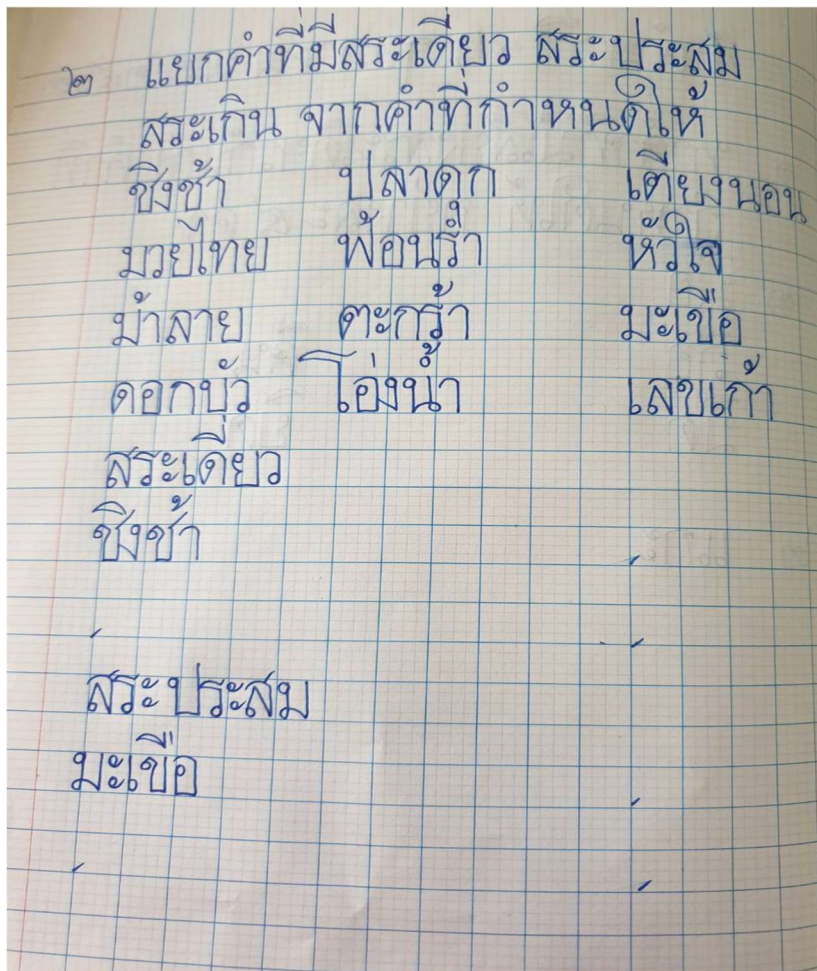 ๒ แยกคำที่มีสระเดี่ยว สระประสม
สระเกิน จากคำที่กำหนดให้
ชิงช้า ปลาดุก เตียงนอน
มวยไทย ฟ้อนรำ หัวใจ
ม้าลาย ตะกร้า มะเขือ
ดอกบัว โอ่งน้ำ เลขเก้า
สระเดี่ยว
ชิงช้า
สระประสม
มะเขือ